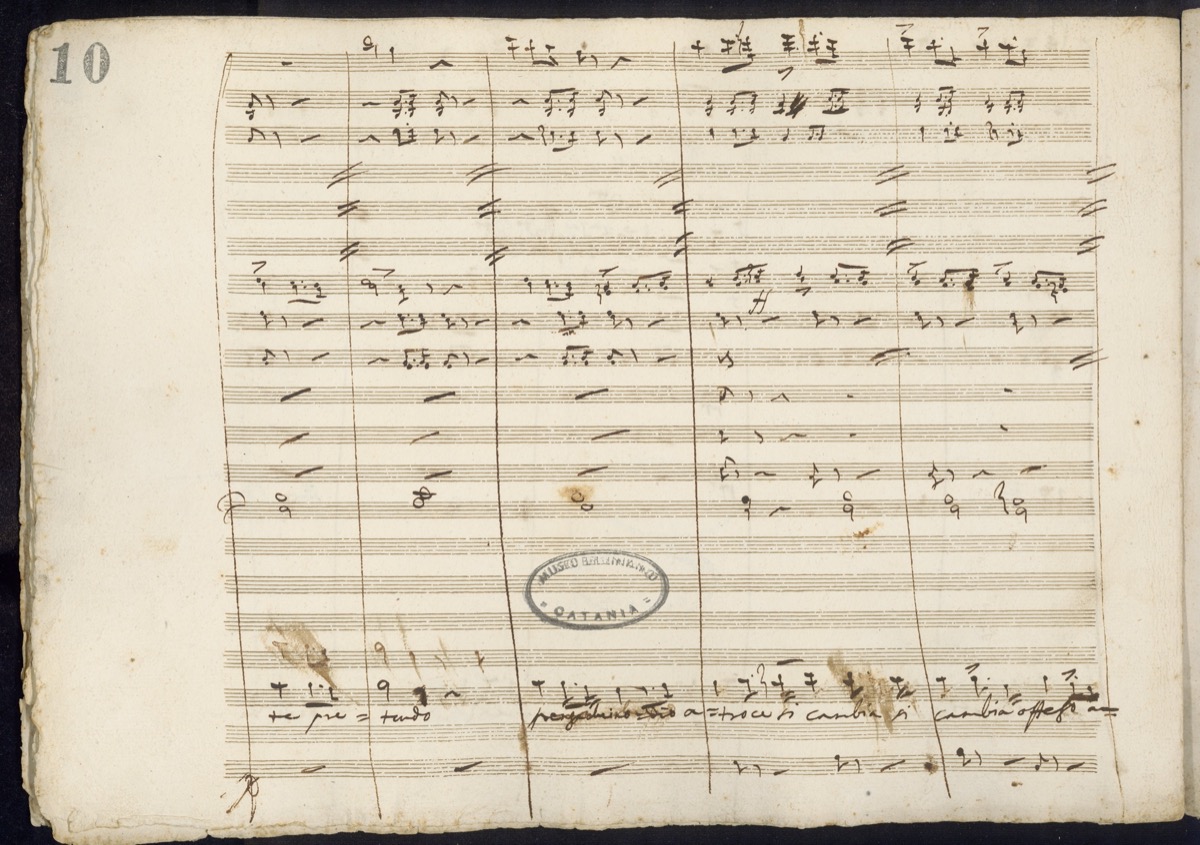 10
ff
MUSEO BELLINIANO
CATANIA
te pre = tendo odio a = troce si cambia si cambia a =